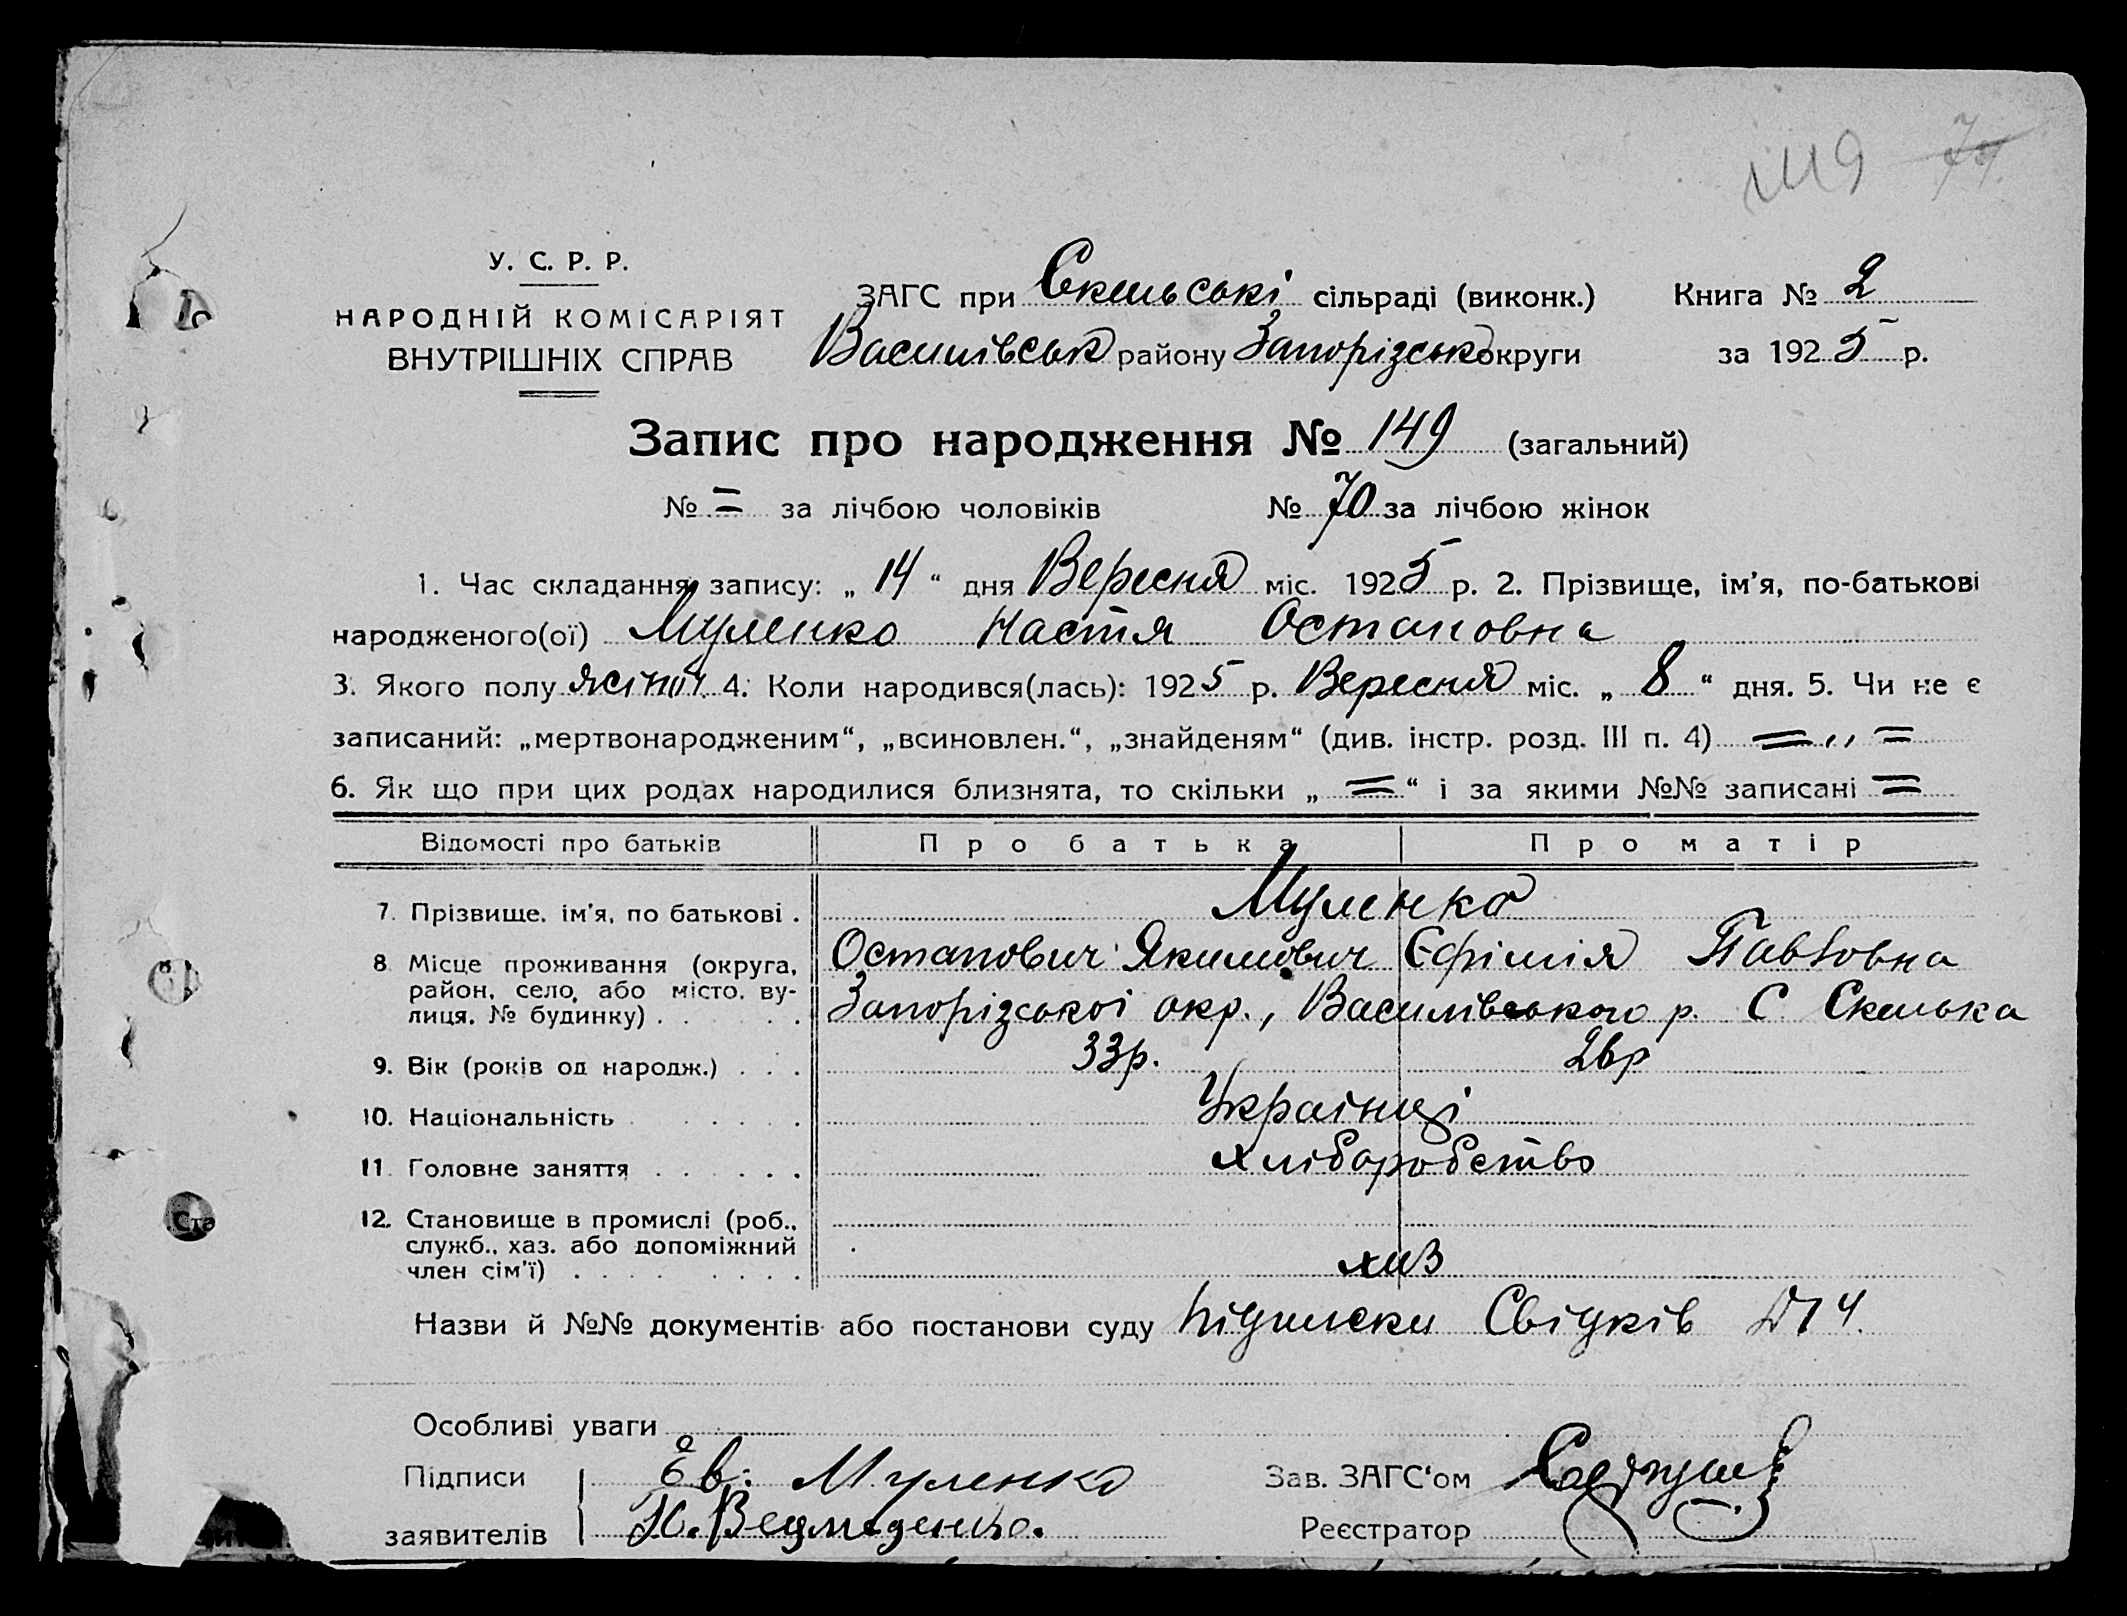 149 70
У. С. Р. Р.
НАРОДНІЙ КОМІСАРІЯТ
ВНУТРІШНІХ СПРАВ
ЗАГС при Скельські сільраді (виконк.) Книга № 2
Василівськ району Запорізськ округи за 1925 р.
Запис про народження № 149 (загальний)
№ = за лічбою чоловіків № 70 за лічбою жінок
1. Час складання запису: „ 14 “ дня Вересня міс. 1925 р. 2. Прізвище, ім'я, по-батькові
народженого(ої) Муленко Настя Остаповна
3. Якого полу жіноч. 4. Коли народився(лась): 1925 р. Вересня міс. „ 8 “ дня. 5. Чи не є
записаний: „мертвонародженим“, „всиновлен.“, „знайденям“ (див. інстр. розд. III п. 4) = „ =
6. Як що при цих родах народилися близнята, то скільки „ = “ і за якими №№ записані =
Відомості про батьків Про батька Про матір
7. Прізвище, ім'я, по батькові . Муленко
Остапович Якимович Єфімія Павловна
8 Місце проживання (округа,
район, село, або місто, ву-
лиця, № будинку) . . . . Запорізської окр., Василівського р. С. Скелька
9. Вік (років од народж.) . . . 33р. 26р
10. Національність . . . . . Українці
11. Головне заняття . . . . . хліборобство
12. Становище в промислі (роб.,
служб., хаз. або допоміжний
член сім'ї) . . . . . . . . хаз
Назви й №№ документів або постанови суду підписки Свідків
Особливі уваги
Підписи Єв. Муленко Зав. ЗАГС‘ом
заявителів Реєстратор
Ста